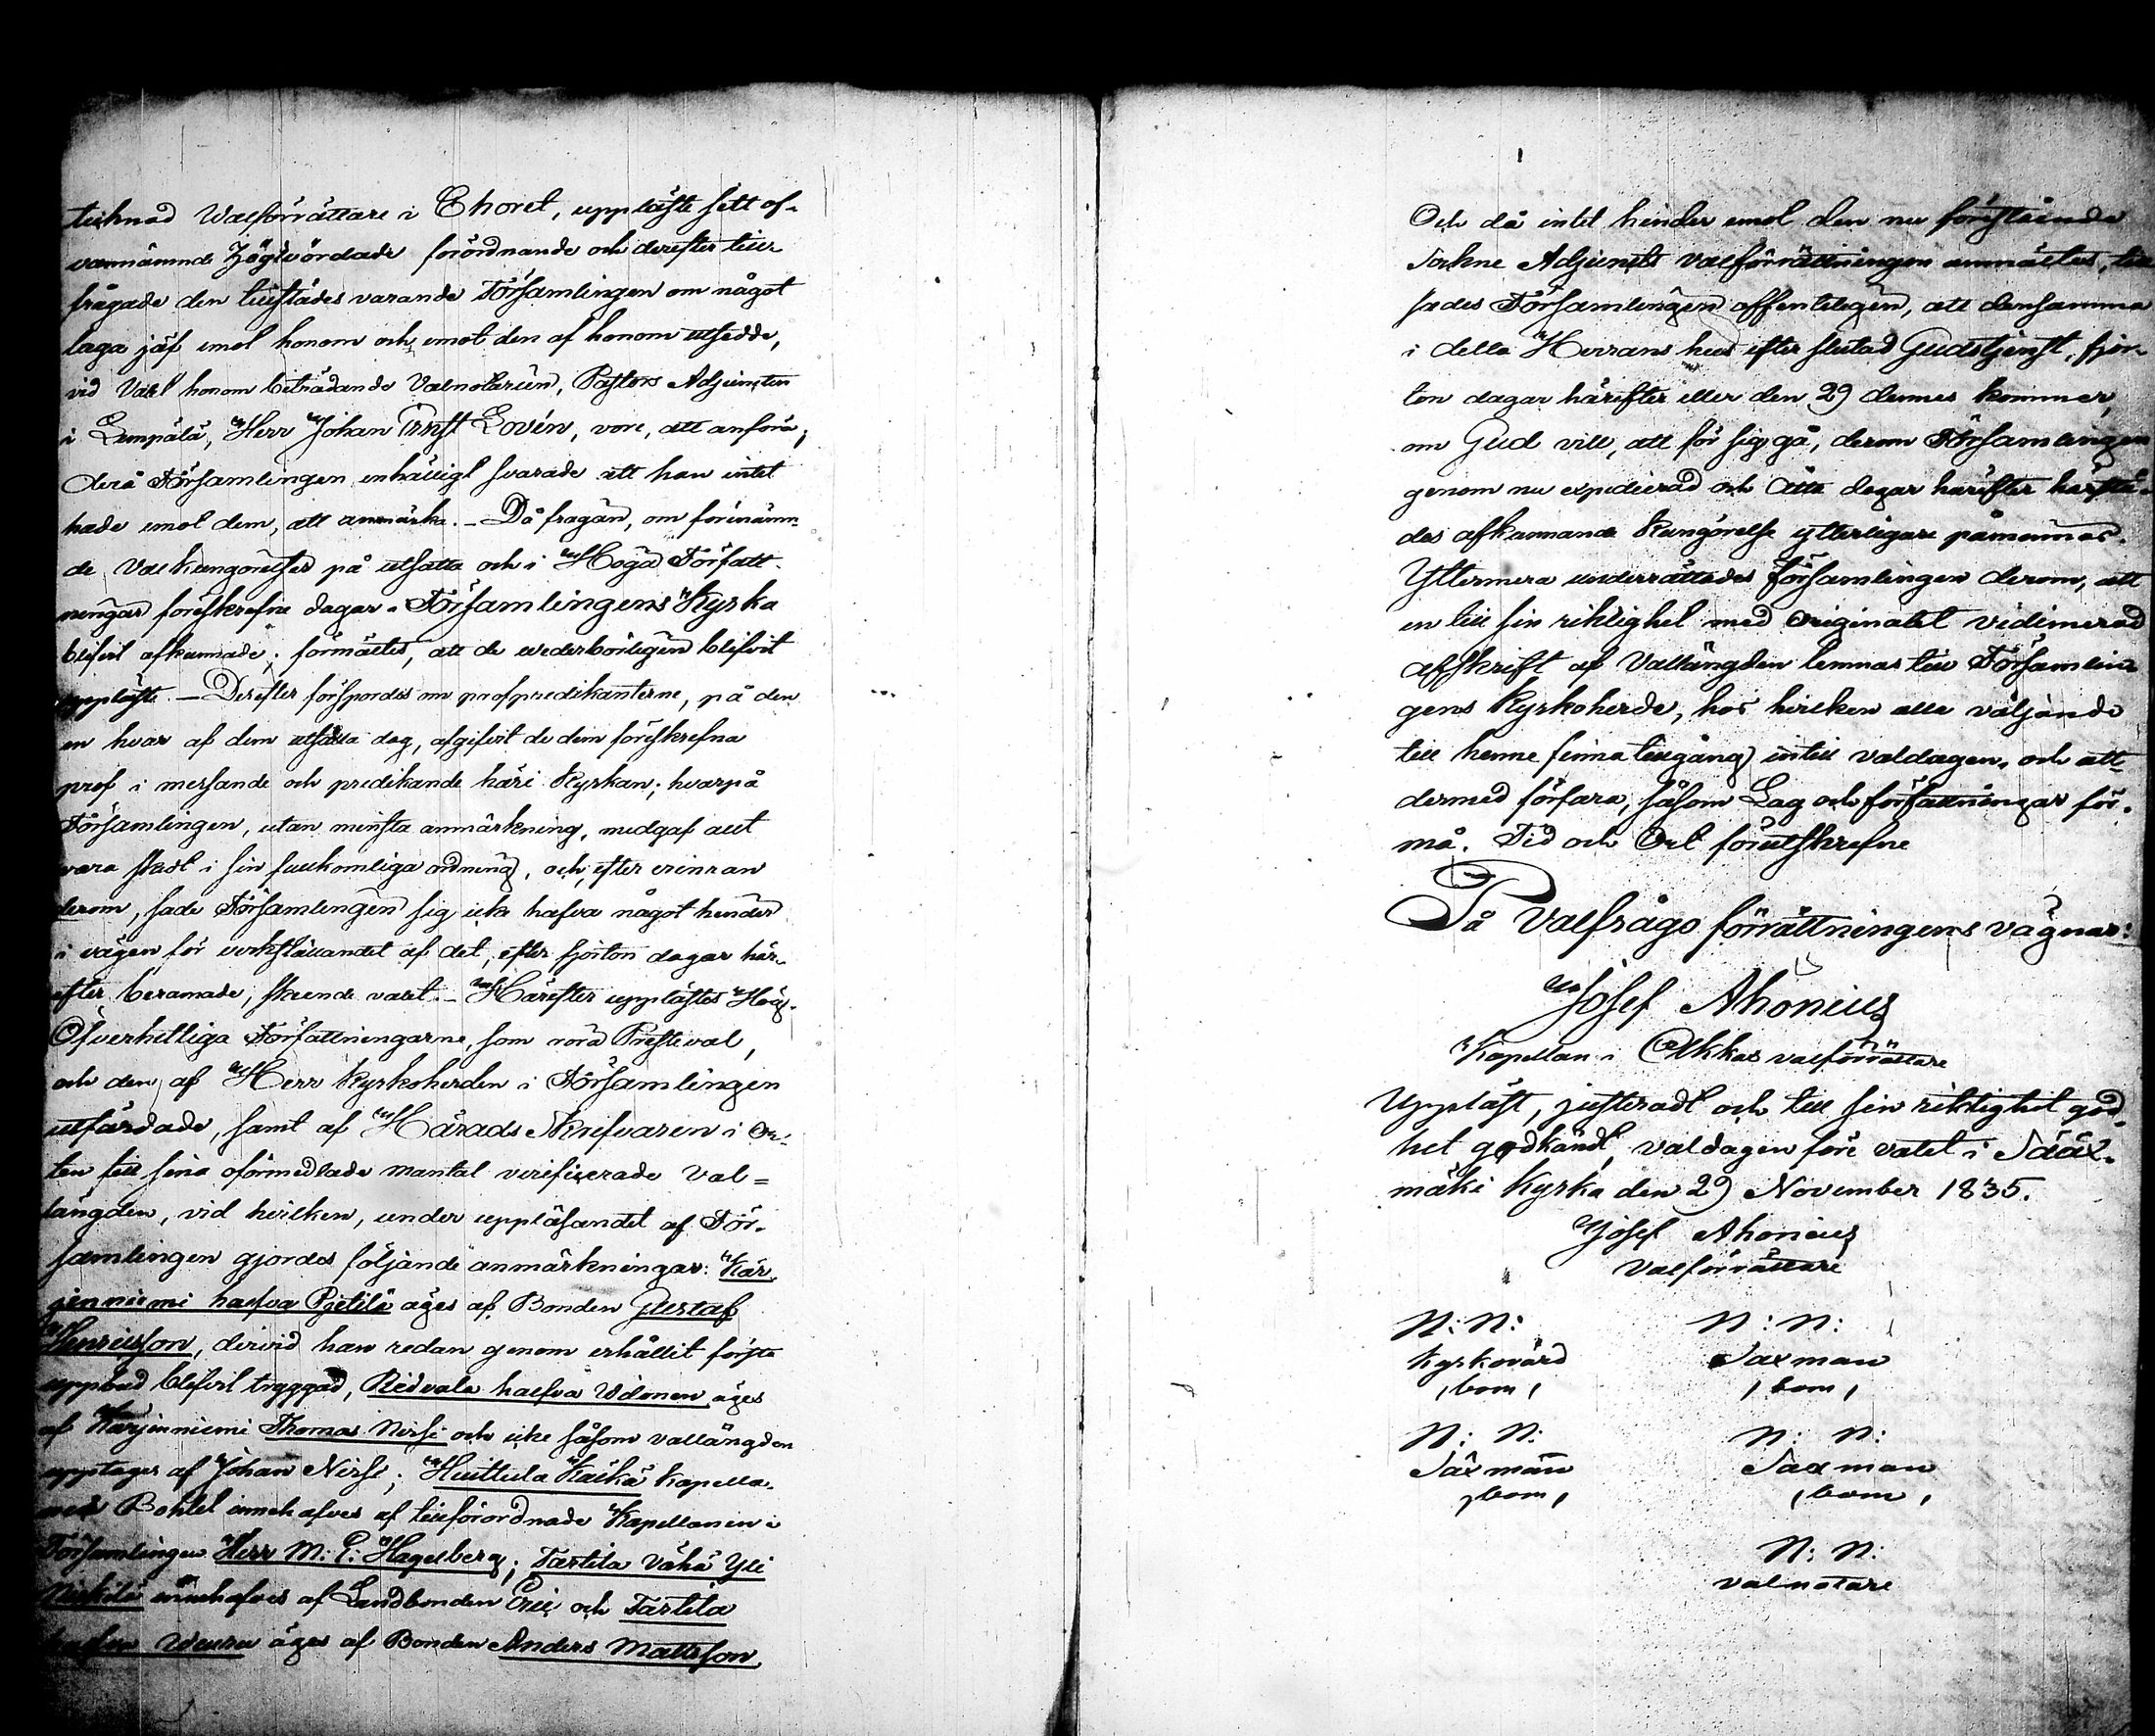 tecknad Walförrättare i Choret, uppläste sitt of-
vannämnde Högwördade förordnande och derefter till-
frågade den tillstädes varande Församlingen om något
laga jäf emot honom och emot den af honom utsedde,
vid Valet honom biträdande Valnotarien, Pastors Adjuncten
i Lempälä, Herr Johan Ernst Lovén, vore, att anföra;
derå Församlingen enhälligt svarade att han intet
hade emot dem, att anmärka. - Då frågan, om förenämn-
de Valkungörelser på utsatta och i Höga Författ-
ningar föreskrefne dagar i Församlingens Kyrka
blifvit afkunnade; förmältes, att de wederbörligen blifvit
uppläste. - Derefter förspordes om profpredikanterne, på den
en hvar af dem utsatta dag, afgifvit de dem föreskrefna
prof i messande och predikande häri Kyrkan; hvarpå
Församlingen, utan minsta anmärkning, medgaf allt
vara skedt i sin fullkomliga ordning, och efter erinran
derom, sade Församlingen sig icke hafva något hinder
i vägen för verkställandet af det, efter fjorton dagar här-
efter beramade, skeende valet. - Härefter upplästes Hög-
Öfverhetliga Författningarne, som röra Presteval,
och den af Herr Kyrkoherden i Församlingen
utfärdade, samt af Härads Skrifvaren i Or-
ten till sina oförmedlade mantal verifiserade Val=
längden, vid hvilken, under uppläsandet af För-
samlingen gjordes följande anmärkningar: Kär
jenniemi halfva Pietilä äges af Bonden Gustaf
Henricsson, dervid han redan genom erhållit första
uppbud blifvit tryggad, Ridvala halfva Uotonen äges
af Karjenniemi Thomas Nirfi och icke såsom vallängden
upptages af Johan Nirfi; Huittula Kaikä Kapella-
ned Bohlet innehafves af tillförordnade Kapellanen i
Församlingen Herr M: E: Hagelberg; Tarttila Vähä Yli
Nickilä innehafves af Landbonden Eric och Tartila
halfva äges af Bonden Anders Mattsson,
Och då intet hinder emot den nu förestående
Sockne Adjuncts valförrättningen anmältes, till
sades Församlingen offentligen, att densamma
i detta Herrans hus efter slutad Gudstjenst, fjor-
ton dagar härefter eller den 29 dennes kommer,
om Gud vill, att för sig gå, derom Församlingen
genom nu expedierad och åtta dagar härefter härstä-
des afkunnande Kungörelse ytterligare påminnes.
Yttermera underrättades Församlingen derom, att
en till sin riktighet med originalet vidimerad
afskrift af Vallängden lemnas till Församlin-
gens Kyrkoherde, hos hvilken alla väljande
till henne finna tillgång intill valdagen, och att
dermed förfara, såsom Lag och författningar för-
må. Tid och Ort förutskrefne
På Valfrågo förrättningens vägnar:
Josef Ahonius
Kapellan i Akkas valförrättare
Uppläst, justeradt och till sin riktighet god
het godkändt, valdagen före valet i Sääx-
mäki Kyrka den 29 November 1835.
Josef Ahonius
Valförrättare
N: N: N: N:
Kyrkovärd Saxman
,bom, ,bom,
N: N: N: N:
Saxman Saxman
,bom, ,bom,
N: N:
valnotare